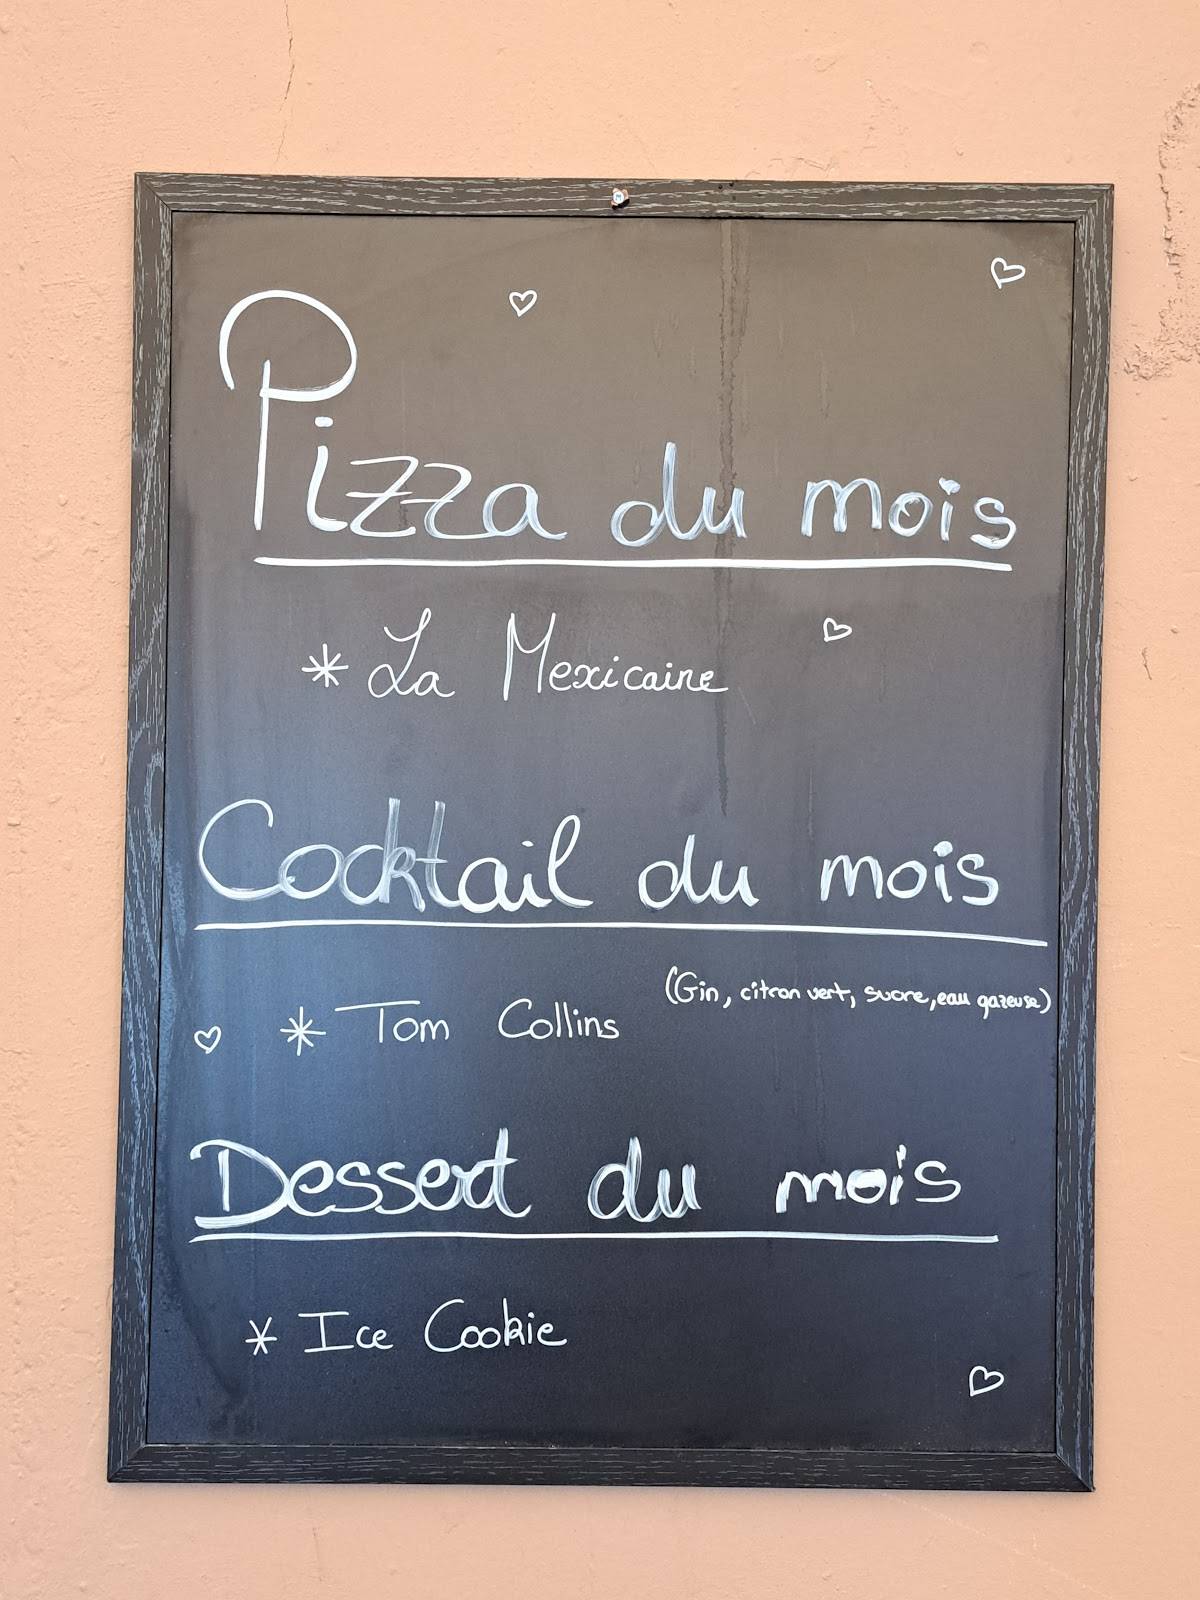 Pizza du mois
* La Mexicaine
Cocktail du mois
(Gin, citron vert, sucre, eau gazeuse)
* Tom Collins
Dessert du mois
* Ice Cookie